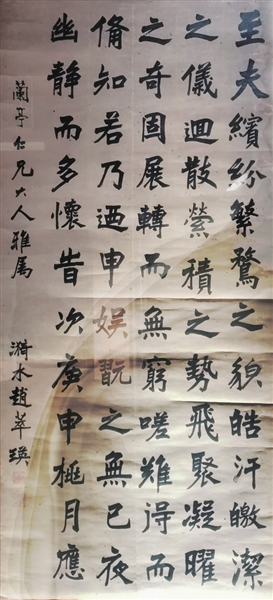 至夫繽紛繁騖之貌皓汗皦潔
之儀迴散縈積之勢飛聚凝曜
之奇固展轉而無窮嗟難得而
俻知若乃迺申娛翫之無已夜
幽静而多懷旹次庚申桃月應
蘭亭仁兄大人雅属 水趙萃瑛